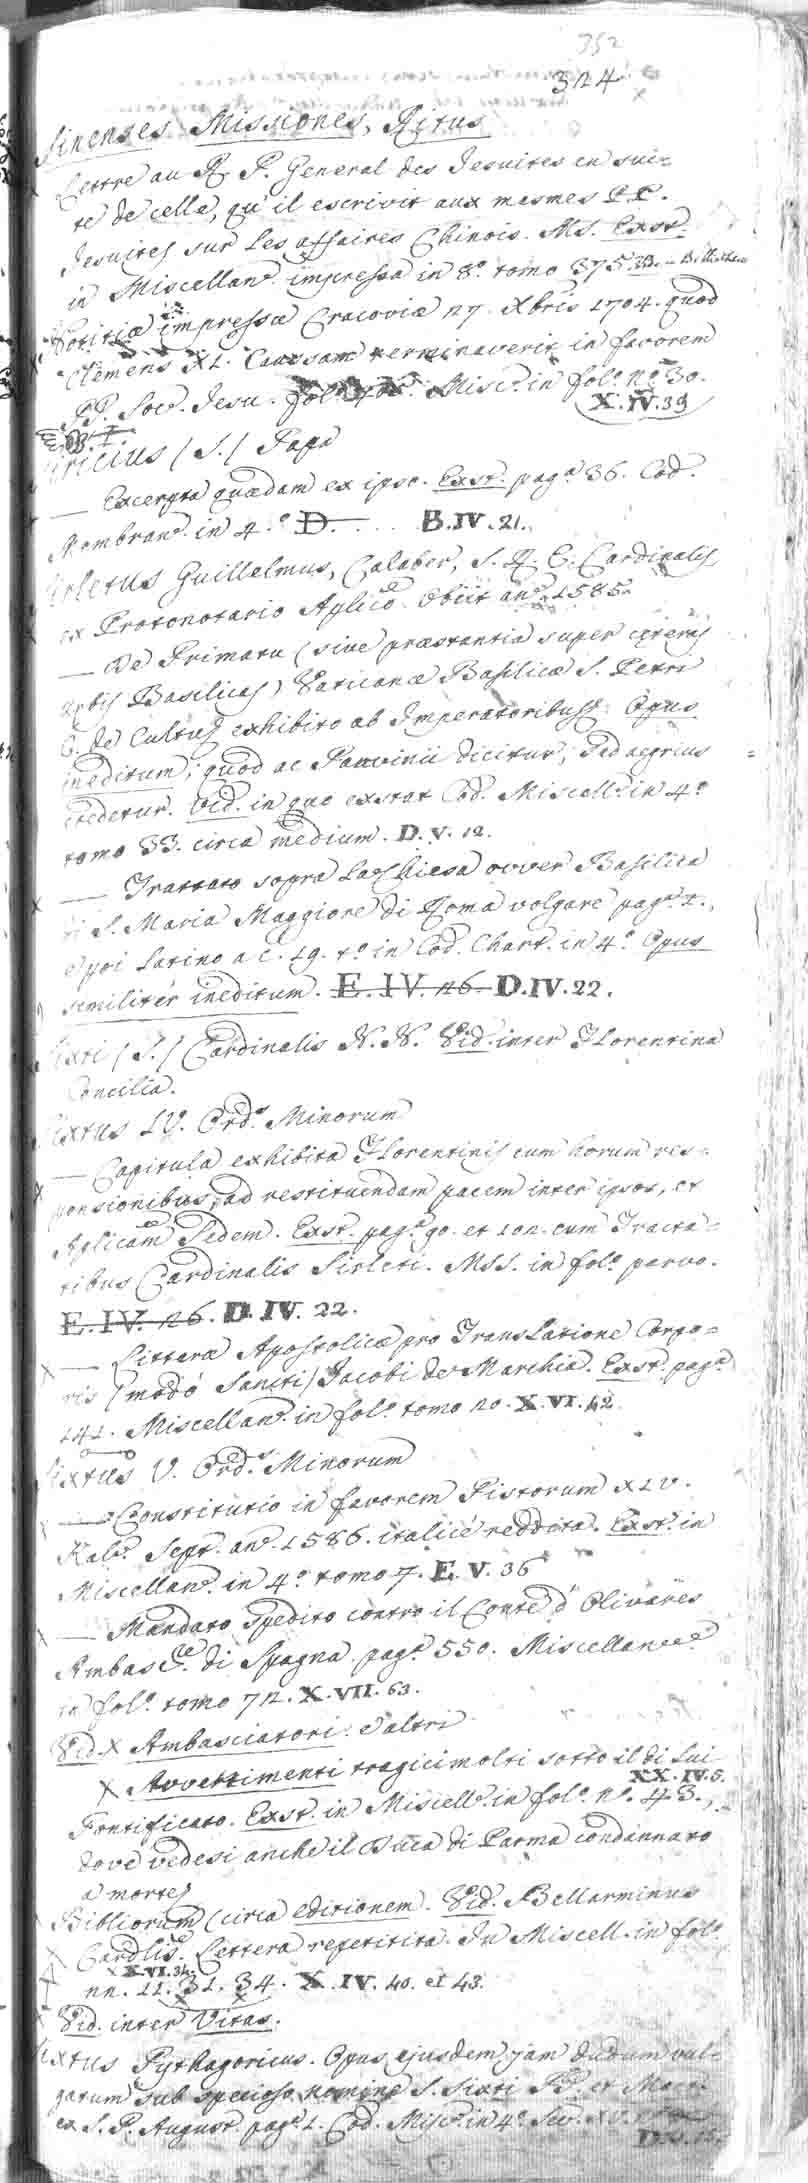 352
324
Sinenses Missiones, Ritus
Lettre au R. P. General des Jesuites en sui=
te de celle, qu'il escrivit aux mesmes PP.
Jesuites sur les affaires Chinois. MS. Exst.
in Miscellan. impressa in 8.º tomo 375.
Notitiæ impressæ Cracoviæ 27. Xbris 1704. quod
Clemens XI. Caussam terminaverit in favorem
PP. Soc. Jesu. fol.º Misc. in fol.º nº 30.
X.IV.39
Siricius (S.) Papa
— Excerpta quædam ex ipso. Exst. pag.ª 36. Cod.
Membran. in 4.º D. . . . B.IV.21.
Sirletus Guillelmus, Calaber, S. R. E. Cardinalis
ex Protonotario Aplico. Obiit an.º 1585.
— De Primatu (sive præstantia super cæteras
Urbis Basilicas) Vaticanæ Basilicæ S. Petri
& de Cultu exhibito ab Imperatoribus. Opus
ineditum; quod ac Panvinii dicitur, sed aegrius
creditur. Vid. in quo exstat Cod. Miscell. in 4.º
tomo 33. circa medium. D. V. 12.
— Trattato sopra la Chiesa ovver Basilica
di S. Maria Maggiore di Roma volgare pag.ª 1.,
e poi Latino a c. 19. t.º in Cod. Chart. in 4.º Opus
similiter ineditum. E. IV. 26. D.IV.22.
Sixti (S.) Cardinalis N. N. Vid. inter Florentina
Concilia.
Sixtus IV. Ord.s Minorum
— Capitula exhibita Florentinis cum horum res=
ponsionibus, ad restituendam pacem inter ipsos, et
Aplicam Sedem. Exst. pag.ª 90. et 102. cum Tracta=
tibus Cardinalis Sirleti. MSS. in fol.º parvo.
E. IV. 26. D. IV. 22.
— Litteræ Apostolicæ pro Translatione Corpo=
ris (modo Sancti) Jacobi de Marchia. Exst. pag.ª
141. Miscellan. in fol.º tomo 20. X.VI.42.
Sixtus V. Ord.s Minorum
— Constitutio in favorem Pistorum XIV.
Kal. Sept. an.º 1586. italicè reddita. Exst. in
Miscellan. in 4.º tomo 7. E. V. 36
— Mandato spedito contro il Conte d'Olivares
Ambas.re di Spagna pag.ª 550. Miscellaneæ
in fol.º tomo 72. X.VII.63.
Vid. X Ambasciatori. d'altri
X Avvertimenti tragici molti sotto il di lui
XX.IV.5.
Pontificato. Exst. in Miscell. in fol.º nº. 43.,
dove vedesi anche il Duca di Parma condannato
a morte
Bibliorum (circa editionem. Vid. Bellarminus
Cardlis. Lettera repetitita. In Miscell. in fol.º
X.VI.34.
nn. 11. 31. 34. X.IV.40. et 43.
Vid. inter Vitas.
Sixtus Pythagoricus. Opus ejusdem jam dudum vul=
gatum sub specioso nomine S. Sixti PP. et
ex S. P. August. pag.ª 1. Cod. Misc. in 4.º Sec. XV.
D.V.